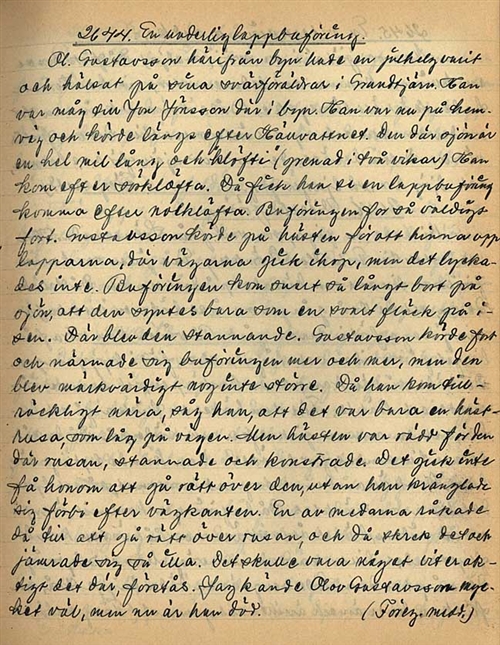 2644. En underlig lappbuföring.
Ol. Gustavsson härifrån byn hade en julhelg varit
och hälsat på sina svärföräldrar i Grundtjärn. Han
var måg till Jon Jönsson där i byn. Han var nu på hem-
väg och körde längs efter Hallvattnet. Den där sjön är
en hel mil lång och "klöfti" (grenad i två vikar) Han
kom efter sörklöfta. Då fick han se en lappbuföring
komma efter nolklöfta. Buföringen for så väldigt
fort. Gustavsson körde på hästen för att hinna upp
lapparna, där vägarna gick ihop, men det lycka-
des inte. Buföringen kom snart så långt bort på
sjön, att den syntes bara som en svart fläck på i-
sen. Där blev den stannande. Gustavsson körde fort
och närmade sig buföringen mer och mer, men den
blev märkvärdigt nog inte större. Då han kom till-
räckligt nära, såg han, att det var bara en häst-
rusa, som låg på vägen. Men hästen var rädd för den
där rusan, stannade och konstrade. Det gick inte
få honom att gå rätt över den, utan han krånglade
sig förbi efter vägkanten. En av medarna råkade
då till att gå rätt över rusan, och då skrek det och
jämrade sig så illa. Det skulle vara något viterak-
tigt det där, förstås. Jag kände Olov Gustavsson myc-
ket väl, men nu är han död. (Föreg. medd.)